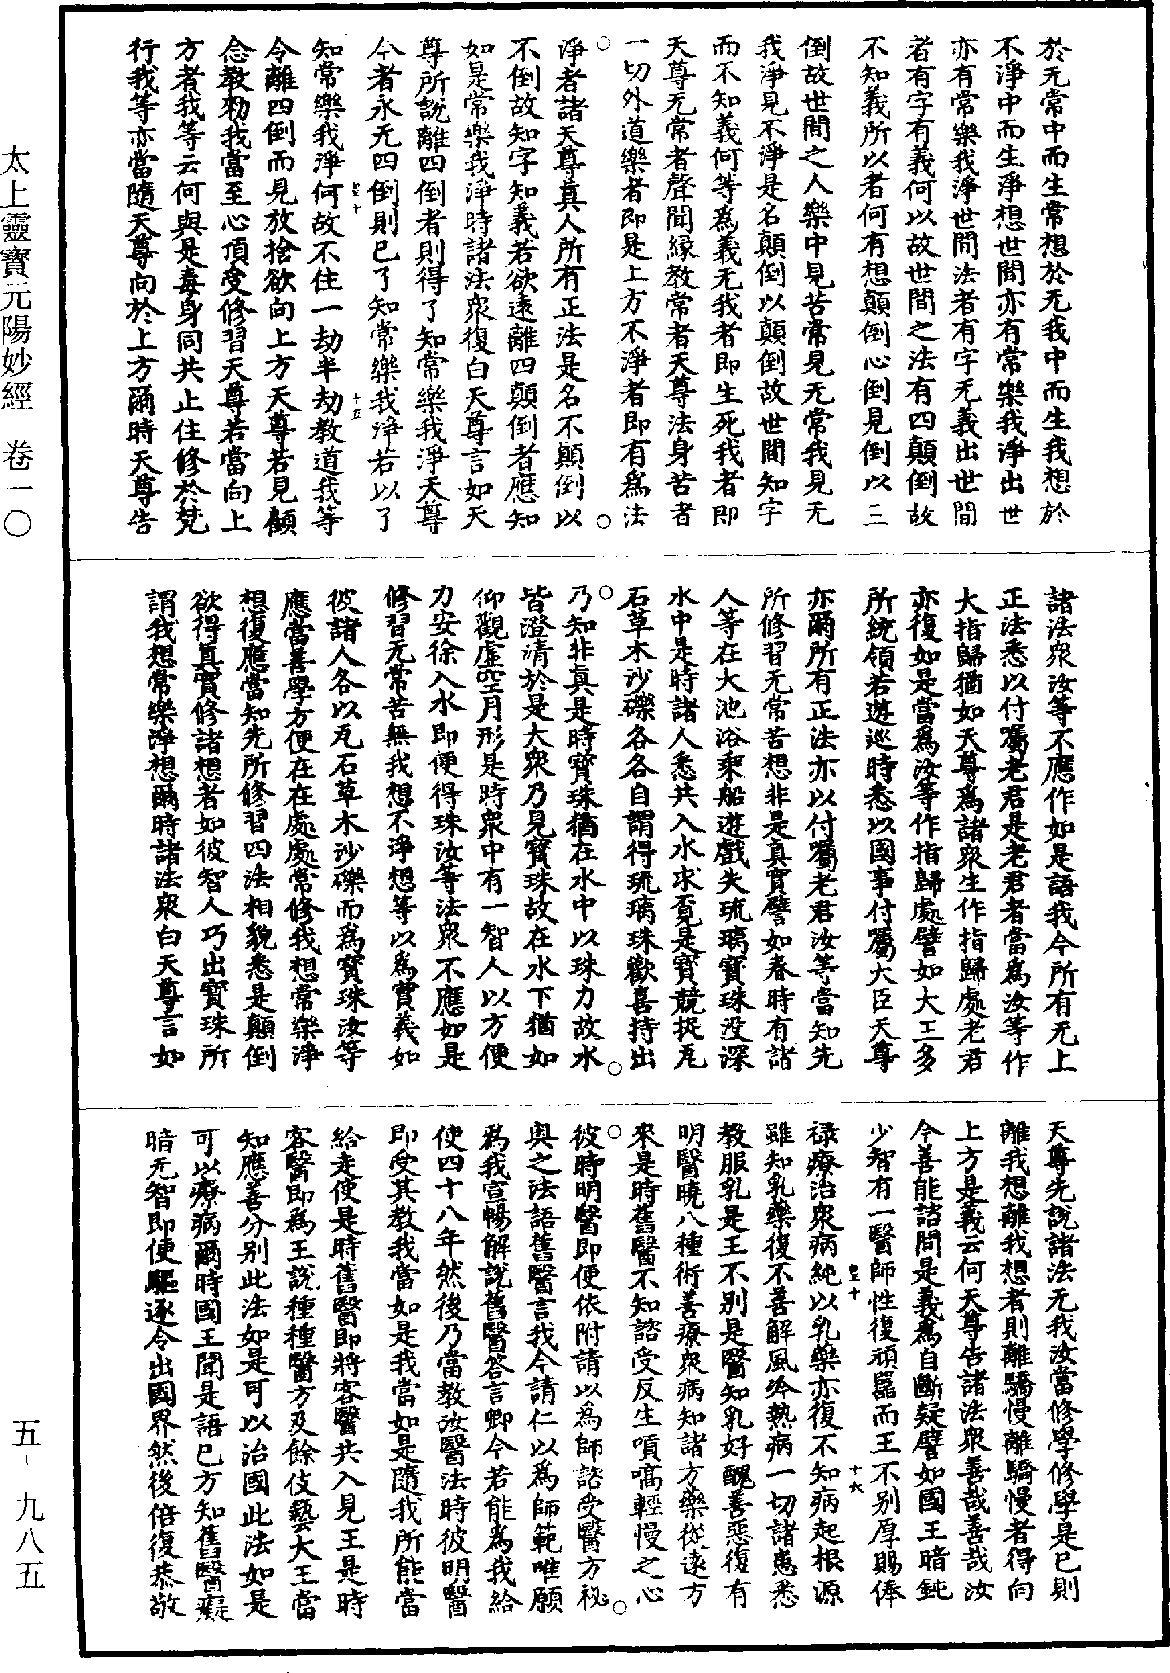 於无常中而生常想於无我中而生我想於
不淨中而生淨想世間亦有常樂我淨出世
亦有常樂我淨世間法者有字无義出世間
者有字有義何以故世間之法有四顛倒故
不知義所以者何有想顛倒心倒見倒以三
倒故世間之人樂中見苦常見无常我見无
我淨見不淨是名顛倒以顛倒故世間知字
而不知義何等為義无我者即生死我者即
天尊无常者聲聞緣教常者天尊法身苦者
一切外道樂者即是上方不淨者即有為法
淨者諸天尊真人所有正法是名不顛倒以
不倒故知字知義若欲遠離四顛倒者應知
如是常樂我淨時諸法衆復白天尊言如天
尊所說離四倒者則得了知常樂我淨天尊
今者永无四倒則已了知常樂我淨若以了
知常樂我淨何故不住一劫半劫教道我等
令離四倒而見放捨欲向上方天尊若見顧
念教勑我當至心頂受修習天尊若當向上
方者我等云何與是毒身同共止住修於梵
行我等亦當隨天尊向於上方爾時天尊告
諸法衆汝等不應作如是語我今所有无上
正法悉以付囑老君是老君者當為汝等作
大指歸猶如天尊為諸衆生作指歸處老君
亦復如是當為汝等作指歸處譬如大王多
所統領若遊巡時悉以國事付囑大臣天尊
亦爾所有正法亦以付囑老君汝等當知先
所修習无常苦想非是真實譬如春時有諸
人等在大池浴乘船遊戲失琉璃寶珠没深
水中是時諸人悉共入水求覓是寶競捉瓦
石草木沙礫各各自謂得琉璃珠歡喜持出
乃知非真是時寶珠猶在水中以珠力故水
皆澄清於是大衆乃見寶珠故在水下猶如
仰觀虛空月形是時衆中有一智人以方便
力安徐入水即便得珠汝等法衆不應如是
修習无常苦無我想不淨想等以為實義如
彼諸人各以瓦石草木沙礫而為寶珠汝等
應當善學方便在在處處常修我想常樂淨
想復應當知先所修習四法相貌悉是顛倒
欲得真實修諸想者如彼智人巧出寶珠所
謂我想常樂淨想爾時諸法衆白天尊言如
天尊先說諸法无我汝當修學修學是已則
離我想離我想者則離驕慢離驕慢者得向
上方是義云何天尊告諸法衆善哉善哉汝
今善能諮問是義為自斷疑譬如國王暗鈍
少智有一醫師性復頑嚚而王不别厚賜俸
禄療治衆病純以乳藥亦復不知病起根源
雖知乳藥復不善解風冷熱病一切諸患悉
教服乳是王不别是醫知乳好醜善惡復有
明醫曉八種術善療衆病知諸方藥從遠方
來是時舊醫不知諮受反生嗔嗃輕慢之心
彼時明醫即便依附請以為師諮受醫方秘
奥之法語舊醫言我今請仁以為師範唯願
為我宣暢解說舊醫答言卿今若能為我給
使四十八年然後乃當教汝醫法時彼明醫
即受其教我當如是我當如是隨我所能當
給走使是時舊醫即將客醫共入見王是時
客醫即為王說種種醫方及餘伎藝大王當
知應善分别此法如是可以治國此法如是
可以療病爾時國王聞是語已方知舊醫癡
暗无智即便驅逐令出國界然後倍復恭敬
太上靈寶元陽妙經 卷一〇
五-九八五